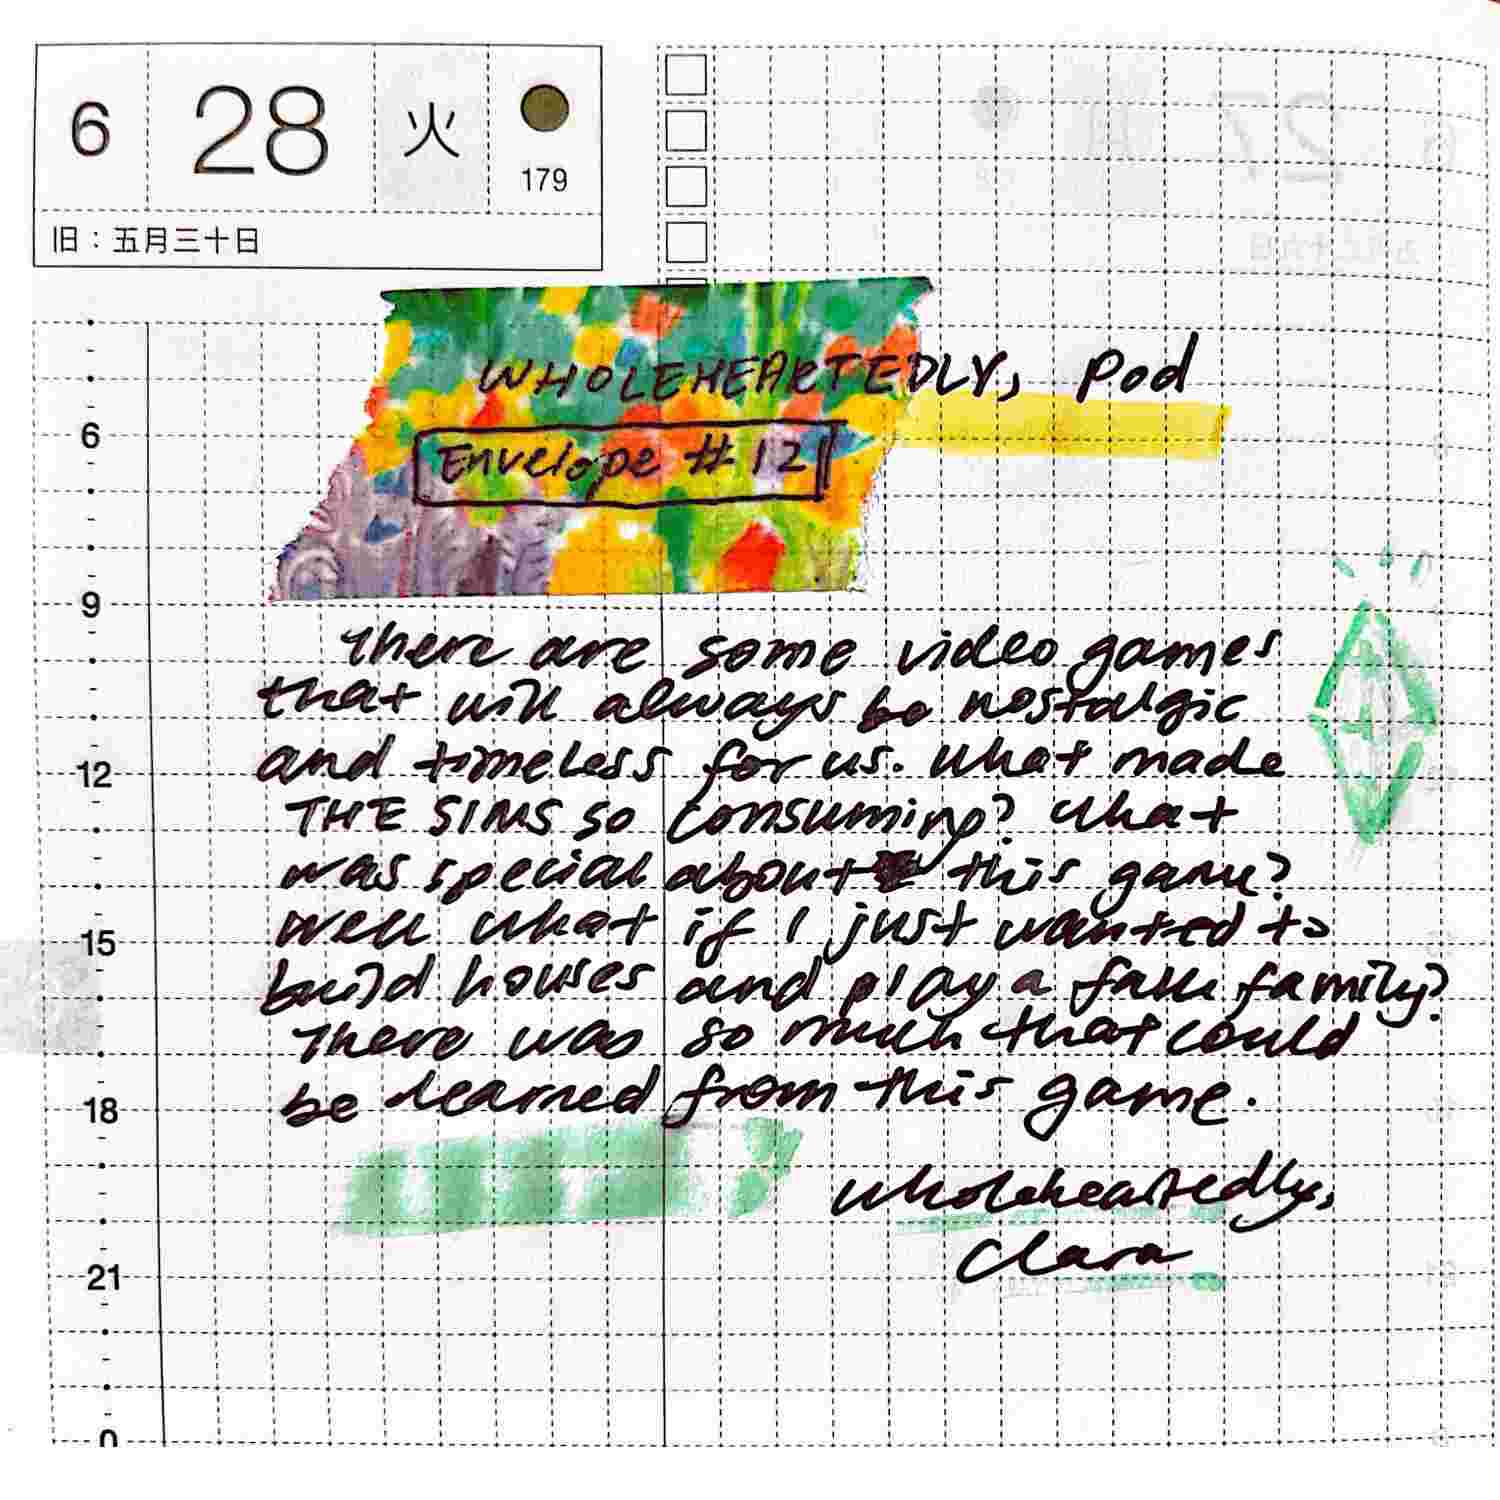 6 28 火
179
旧：五月三十日
WHOLEHEARTEDLY, Pod
Envelope #12
6
9
12
15
18
21
0
There are some video games
that will always be nostalgic
and timeless for us. What made
THE SIMS so consuming? What
was special about this game?
Well what if I just wanted to
build houses and play a fake family?
There was so much that could
be learned from this game.
Wholeheartedly,
Clara